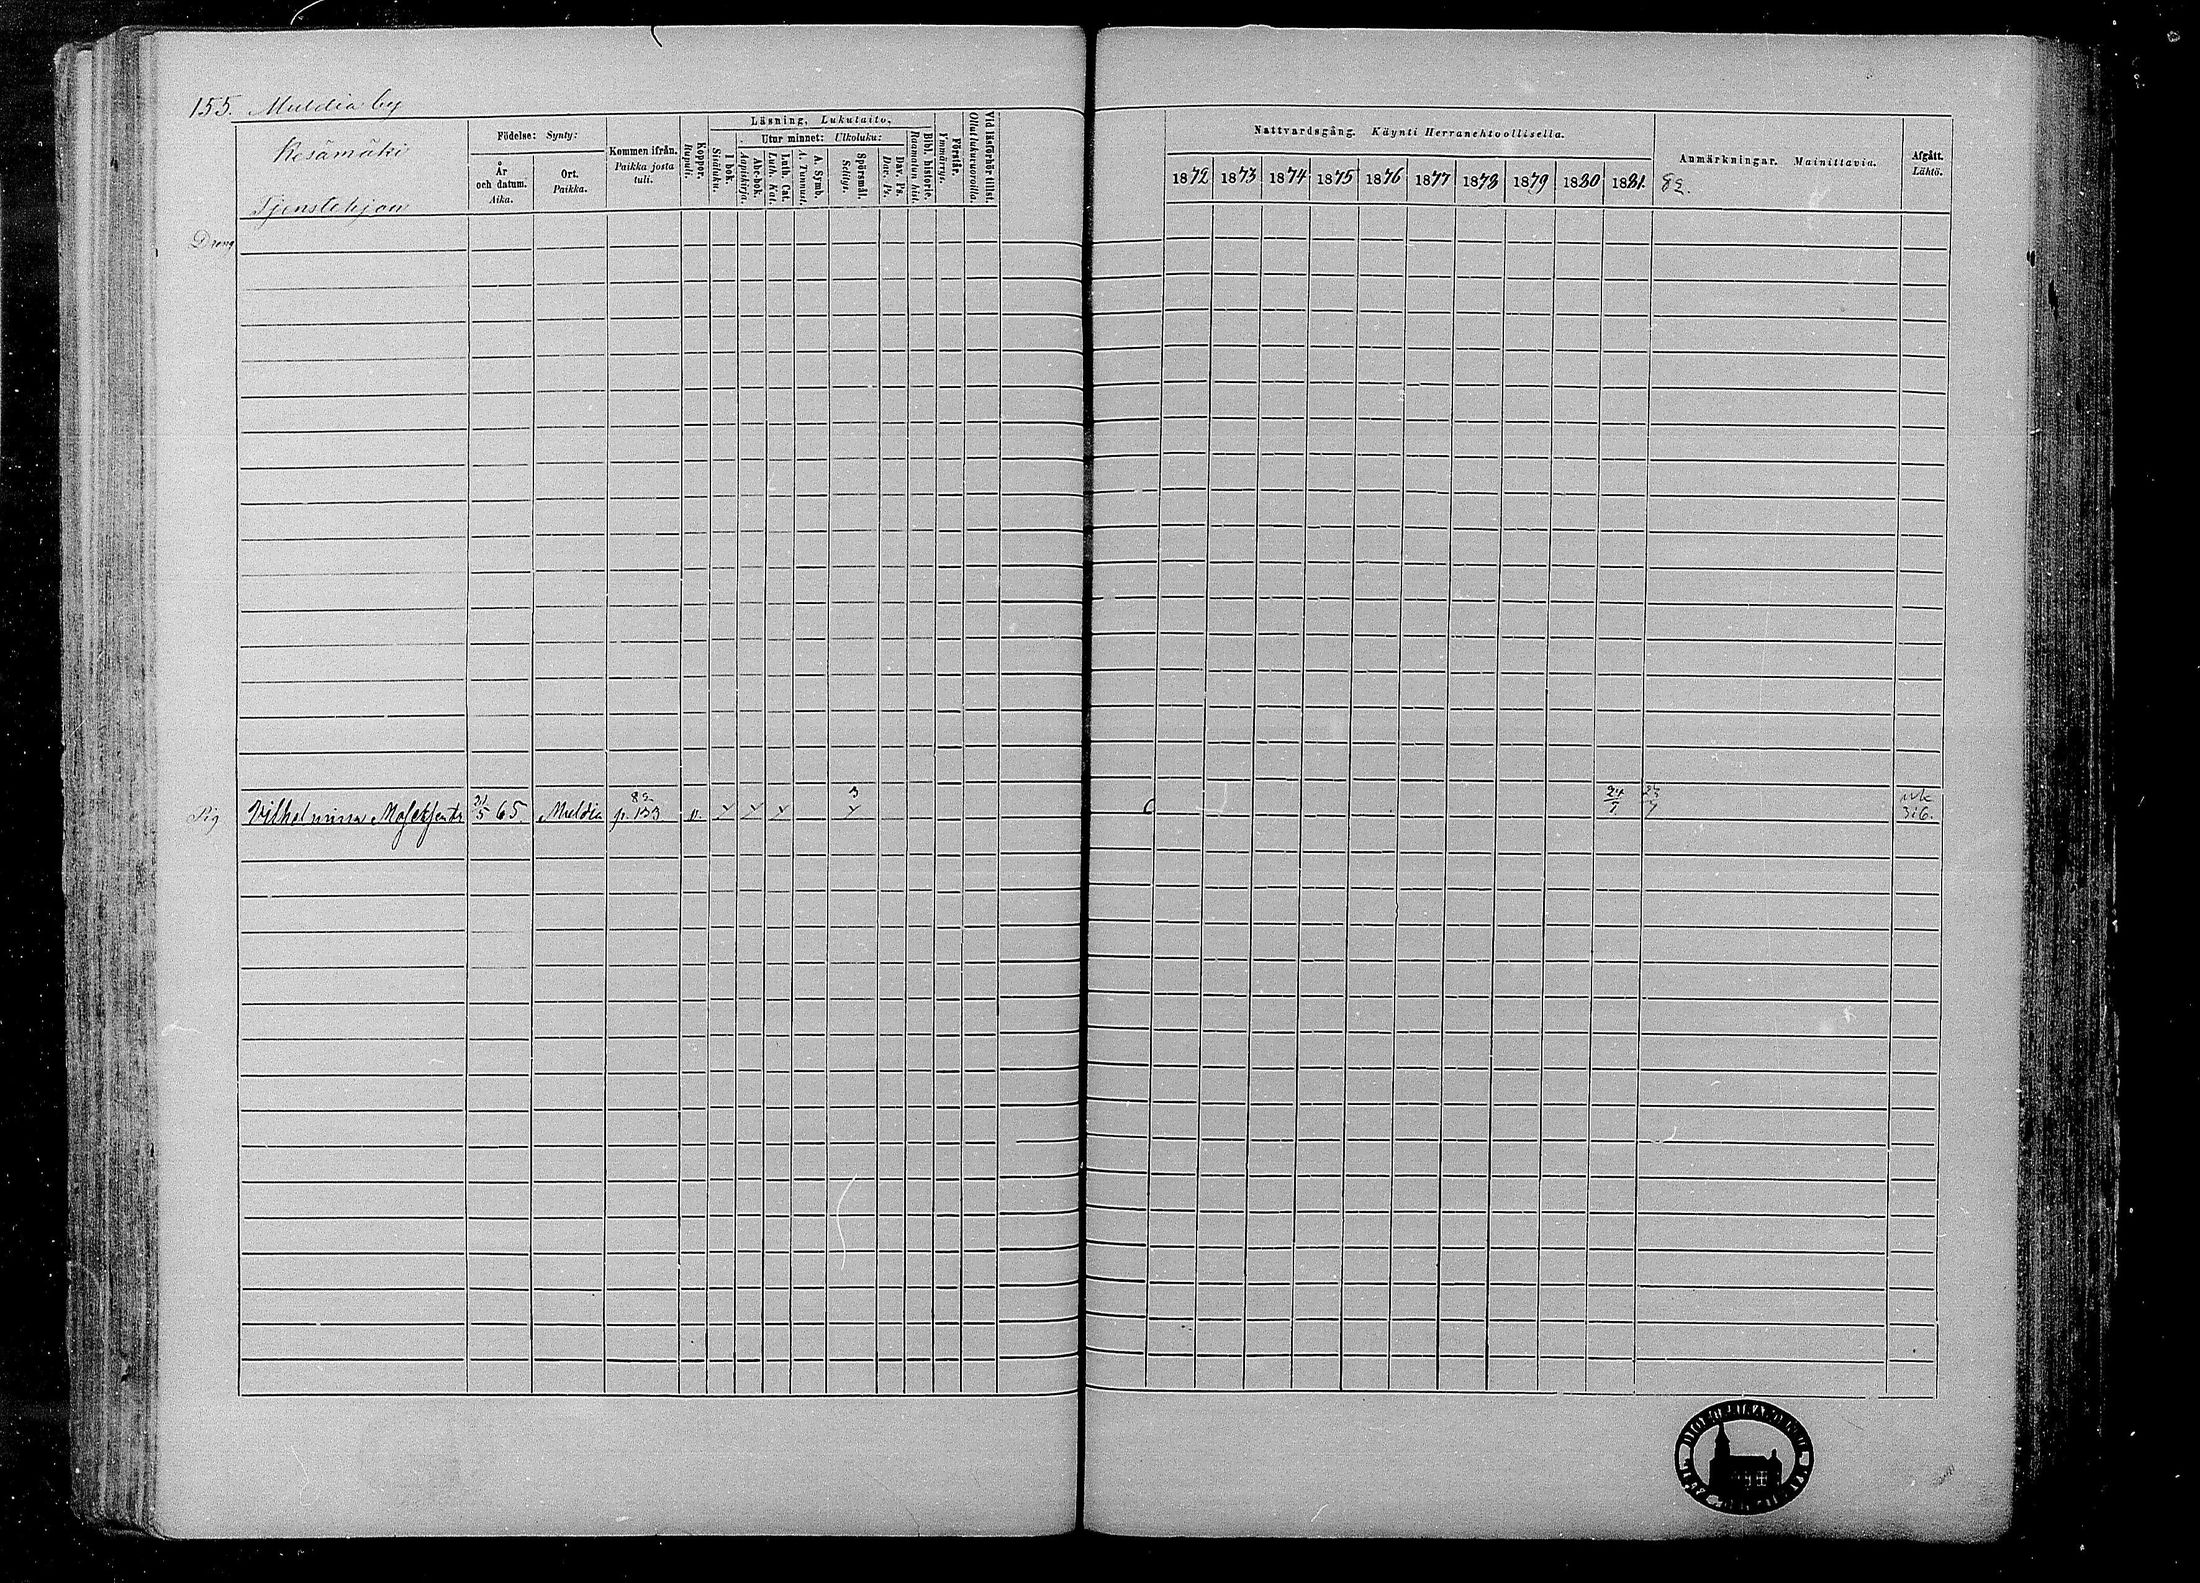 155. Muldia by
Kesämäki
Tjenstehjon
Födelse: Synty:
År och datum. Aika.
Ort. Paikka.
Kommen ifrån. Paikka josta tuli.
Koppor. Rupuli.
Läsning, Lukutaito,
I bok. Sisäluku.
Utur minnet: Ulkoluku:
Abc-bok. Aapiskirja.
Luth. Cat. Luth. Kat.
A. Symb. A. Tunnust.
Spörsmål. Selitys.
Dav. Ps. Dav. Ps.
Bibl. historie. Raamatun hist.
Förstår. Ymmärrys.
Vid läsförhör tillst. Ollut lukuvuoroilla.
Nattvardsgång. Käynti Herranehtoollisella.
1872 1873 1874 1875 1876 1877 1878 1879 1880 1881. 82.
Anmärkningar. Mainittavia.
Afgått. Lähtö.
Dreng
Pig Vilhelmina 21/5 65. Muldia 82 p. 133 v. 3 24/7 23/7 316.